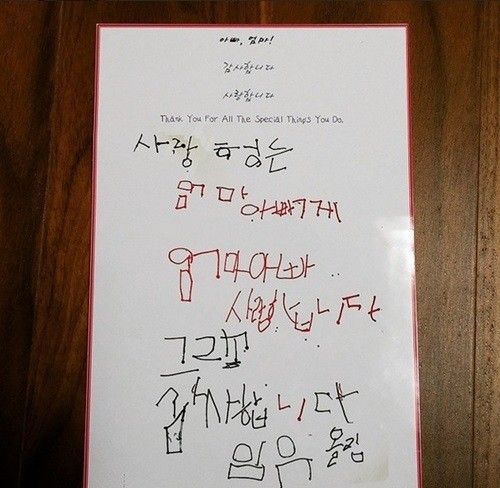 아빠, 엄마!
감사합니다
사랑합니다
Thank You For All The Special Things You Do.
사랑 하는
엄마 아빠에게
엄마아빠
사랑합니다
그리고
감사합니다
올림